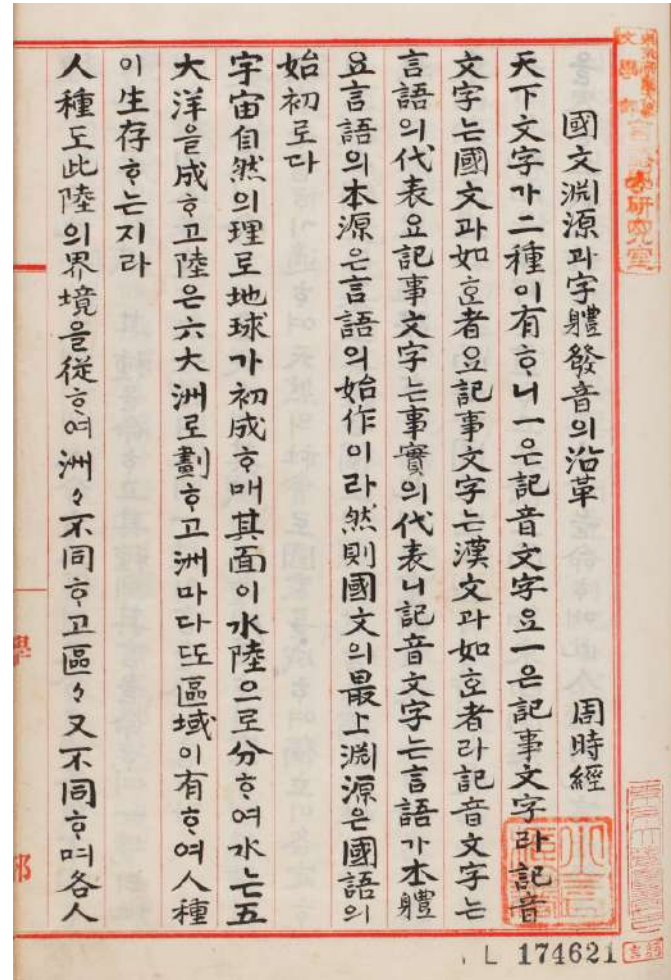 國文淵源과字體發音의沿革 周時經
天下文字가二種이有ᄒᆞ니一은記音文字요一은記事文字라記音
文字는國文과如ᄒᆞᆫ者요記事文字는漢文과如ᄒᆞᆫ者라記音文字는
言語의代表요記事文字는事實의代表니記音文字는言語가本體
요言語의本源은言語의始作이라然則國文의最上淵源은國語의
始初로다
宇宙自然의理로地球가初成ᄒᆞ매其面이水陸으로分ᄒᆞ여水는五
大洋을成ᄒᆞ고陸은六大洲로劃ᄒᆞ고洲마다ᄯᅩ區域이有ᄒᆞ여人種
이生存ᄒᆞ는지라
人種도此陸의界境을從ᄒᆞ여洲々不同ᄒᆞ고區々又不同ᄒᆞ며各人
學
部
L 174621